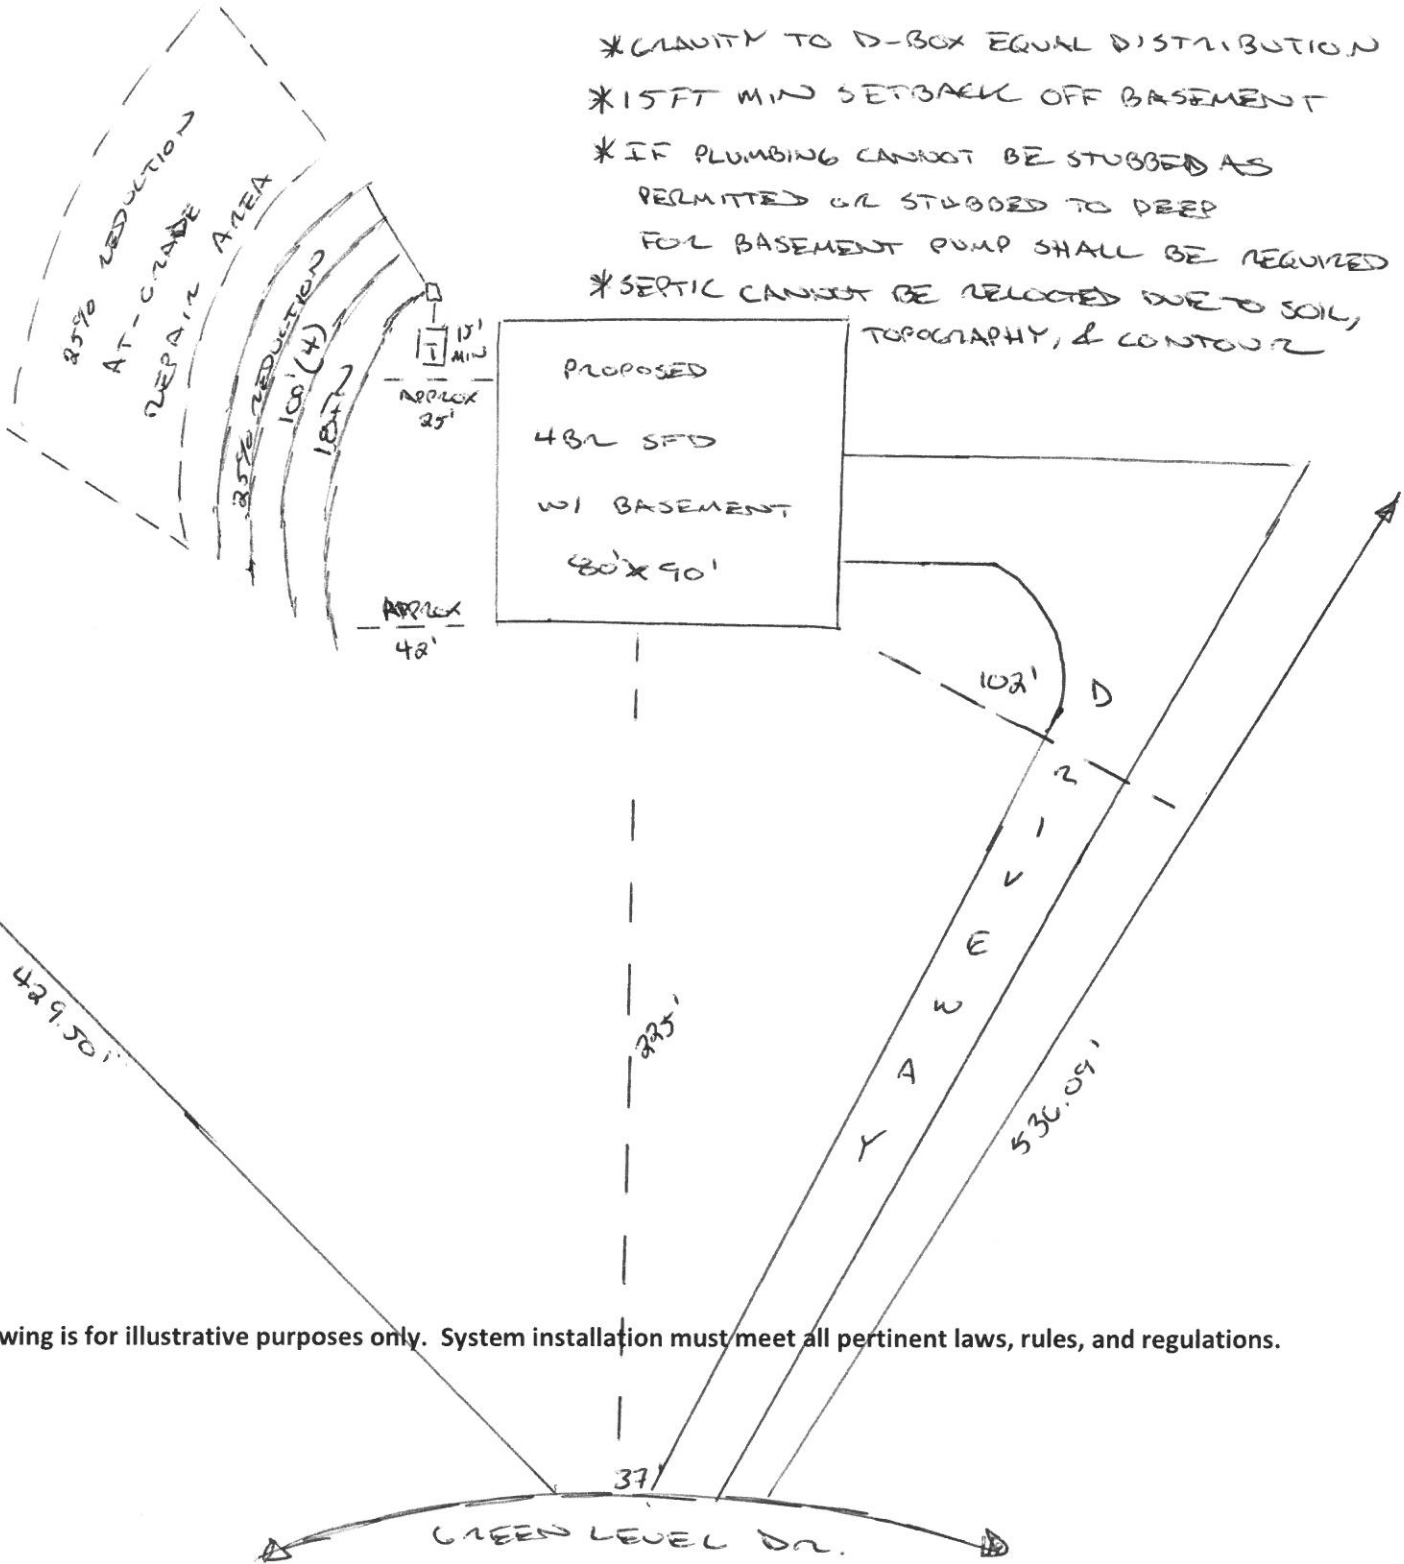 *GRAVITY TO D-BOX EQUAL DISTRIBUTION
*15FT MIN SETBACK OFF BASEMENT
*IF PLUMBING CANNOT BE STUBBED AS
PERMITTED OR STUBBED TO DEEP
FOR BASEMENT PUMP SHALL BE REQUIRED
*SEPTIC CANNOT BE RELOCTED DUE TO SOIL,
TOPOGRAPHY, & CONTOUR
25% REDUCTION
AT-GRADE
REPAIR AREA
25% REDUCTION
100'(4)
T
15'
MIN
APPROX
25'
PROPOSED
4BR SFD
W/ BASEMENT
80'X90'
APPROX
42'
102'
DRIVEWAY
429.50'
225'
536.09'
wing is for illustrative purposes only. System installation must meet all pertinent laws, rules, and regulations.
37'
GREEN LEVEL DR.